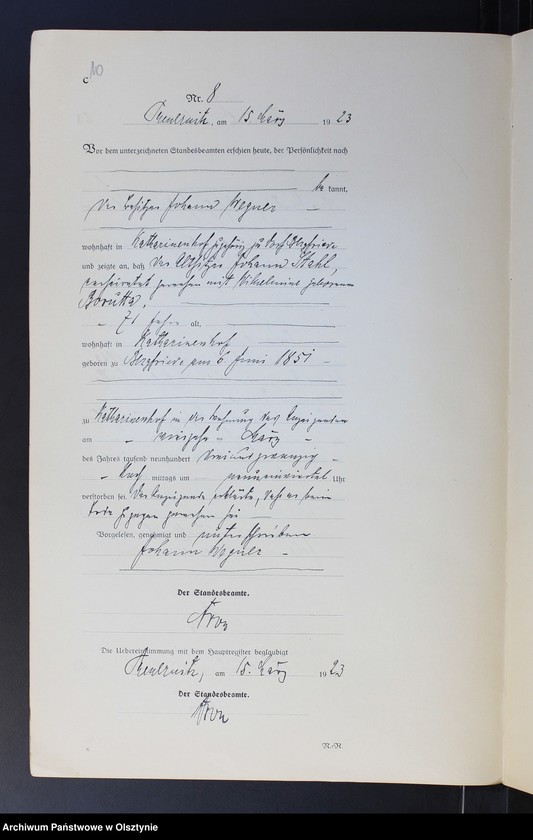 C 10
Nr. 8
am 15 März 1923
Vor dem unterzeichneten Standesbeamten erschien heute, der Persönlichkeit nach
be kannt,
der Besitzer Johann Wegner
wohnhaft in Katharinenhof zu Bergfriede
und zeigte an, daß der Altsitzer Johann Stahl,
verheiratet gewesen mit Wilhelmine geborenen
Borutta,
71 Jahre alt,
wohnhaft in Katharinenhof
geboren zu Bergfriede am 6 Juni 1851
zu Katharinenhof in der Wohnung des Anzeigenden
am März
des Jahres tausend neunhundert dreiundzwanzig
Nach mittags um Uhr
verstorben sei. Der Anzeigende erklärte, daß er beim
Tode zugegen gewesen sei
Vorgelesen, genehmigt und unterschrieben
Johann Wegner
Der Standesbeamte.
Die Uebereinstimmung mit dem Hauptregister beglaubigt
am 15. März 1923
Der Standesbeamte.
Archiwum Państwowe w Olsztynie